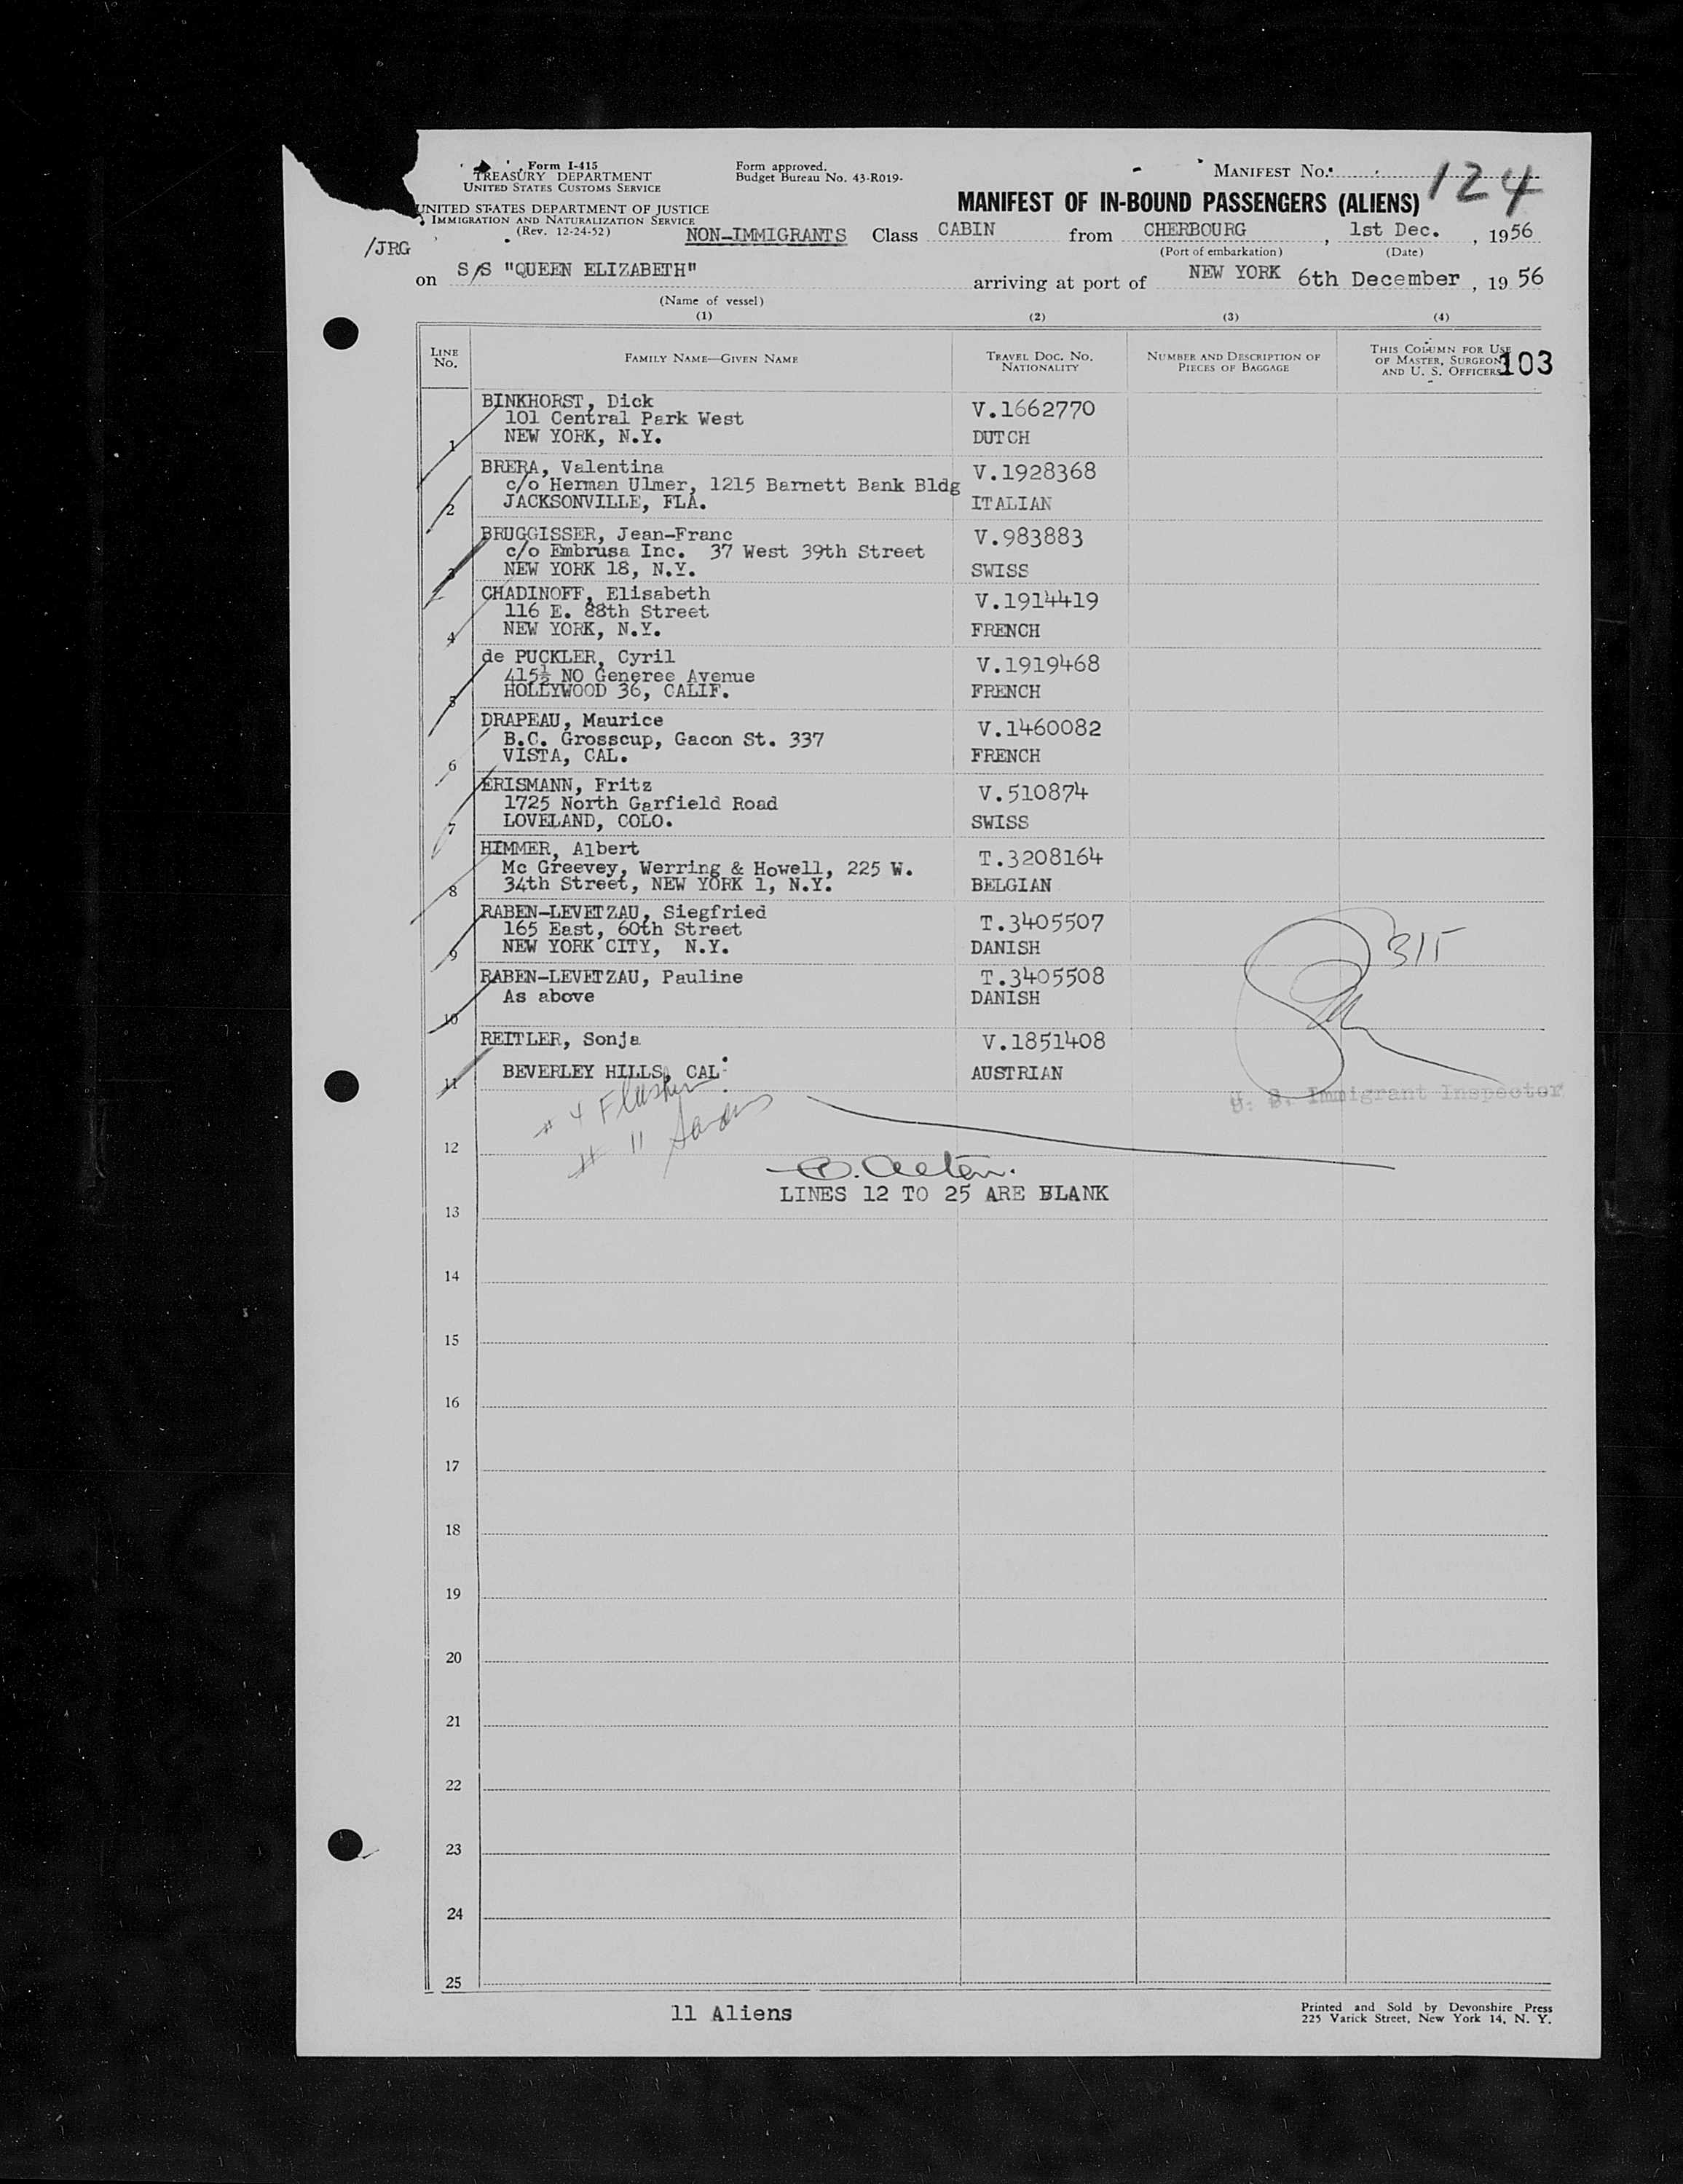 Form I-415
TREASURY DEPARTMENT
UNITED STATES CUSTOMS SERVICE
UNITED STATES DEPARTMENT OF JUSTICE
IMMIGRATION AND NATURALIZATION SERVICE
(Rev. 12-24-52)
Form approved.
Budget Bureau No. 43-R019-
MANIFEST No. 124
MANIFEST OF IN-BOUND PASSENGERS (ALIENS)
/JRG
NON-IMMIGRANTS Class CABIN from CHERBOURG, 1st Dec., 1956
(Port of embarkation) (Date)
on S/S "QUEEN ELIZABETH" arriving at port of NEW YORK 6th December, 19 56
(Name of vessel)
(1) (2) (3) (4)
LINE No. FAMILY NAME—GIVEN NAME TRAVEL DOC. NO. NATIONALITY NUMBER AND DESCRIPTION OF PIECES OF BAGGAGE THIS COLUMN FOR USE OF MASTER, SURGEON, AND U. S. OFFICERS
103
BINKHORST, Dick V.1662770
101 Central Park West
1 NEW YORK, N.Y. DUTCH
BRERA, Valentina V.1928368
c/o Herman Ulmer, 1215 Barnett Bank Bldg
2 JACKSONVILLE, FLA. ITALIAN
BRUGGISSER, Jean-Franc V.983883
c/o Embrusa Inc. 37 West 39th Street
3 NEW YORK 18, N.Y. SWISS
CHADINOFF, Elisabeth V.1914419
116 E. 88th Street
4 NEW YORK, N.Y. FRENCH
de PUCKLER, Cyril V.1919468
415½ NO Generee Avenue
5 HOLLYWOOD 36, CALIF. FRENCH
DRAPEAU, Maurice V.1460082
B.C. Grosscup, Gacon St. 337
6 VISTA, CAL. FRENCH
ERISMANN, Fritz V.510874
1725 North Garfield Road
7 LOVELAND, COLO. SWISS
HIMMER, Albert T.3208164
Mc Greevey, Werring & Howell, 225 W.
8 34th Street, NEW YORK 1, N.Y. BELGIAN
RABEN-LEVETZAU, Siegfried T.3405507
165 East, 60th Street
9 NEW YORK CITY, N.Y. DANISH
315
RABEN-LEVETZAU, Pauline T.3405508
As above DANISH
10
REITLER, Sonja V.1851408
11 BEVERLEY HILLS, CAL. AUSTRIAN
U. S. Immigrant Inspector
# 4
# 11
12
LINES 12 TO 25 ARE BLANK
13
14
15
16
17
18
19
20
21
22
23
24
25
11 Aliens
Printed and Sold by Devonshire Press
225 Varick Street, New York 14, N. Y.